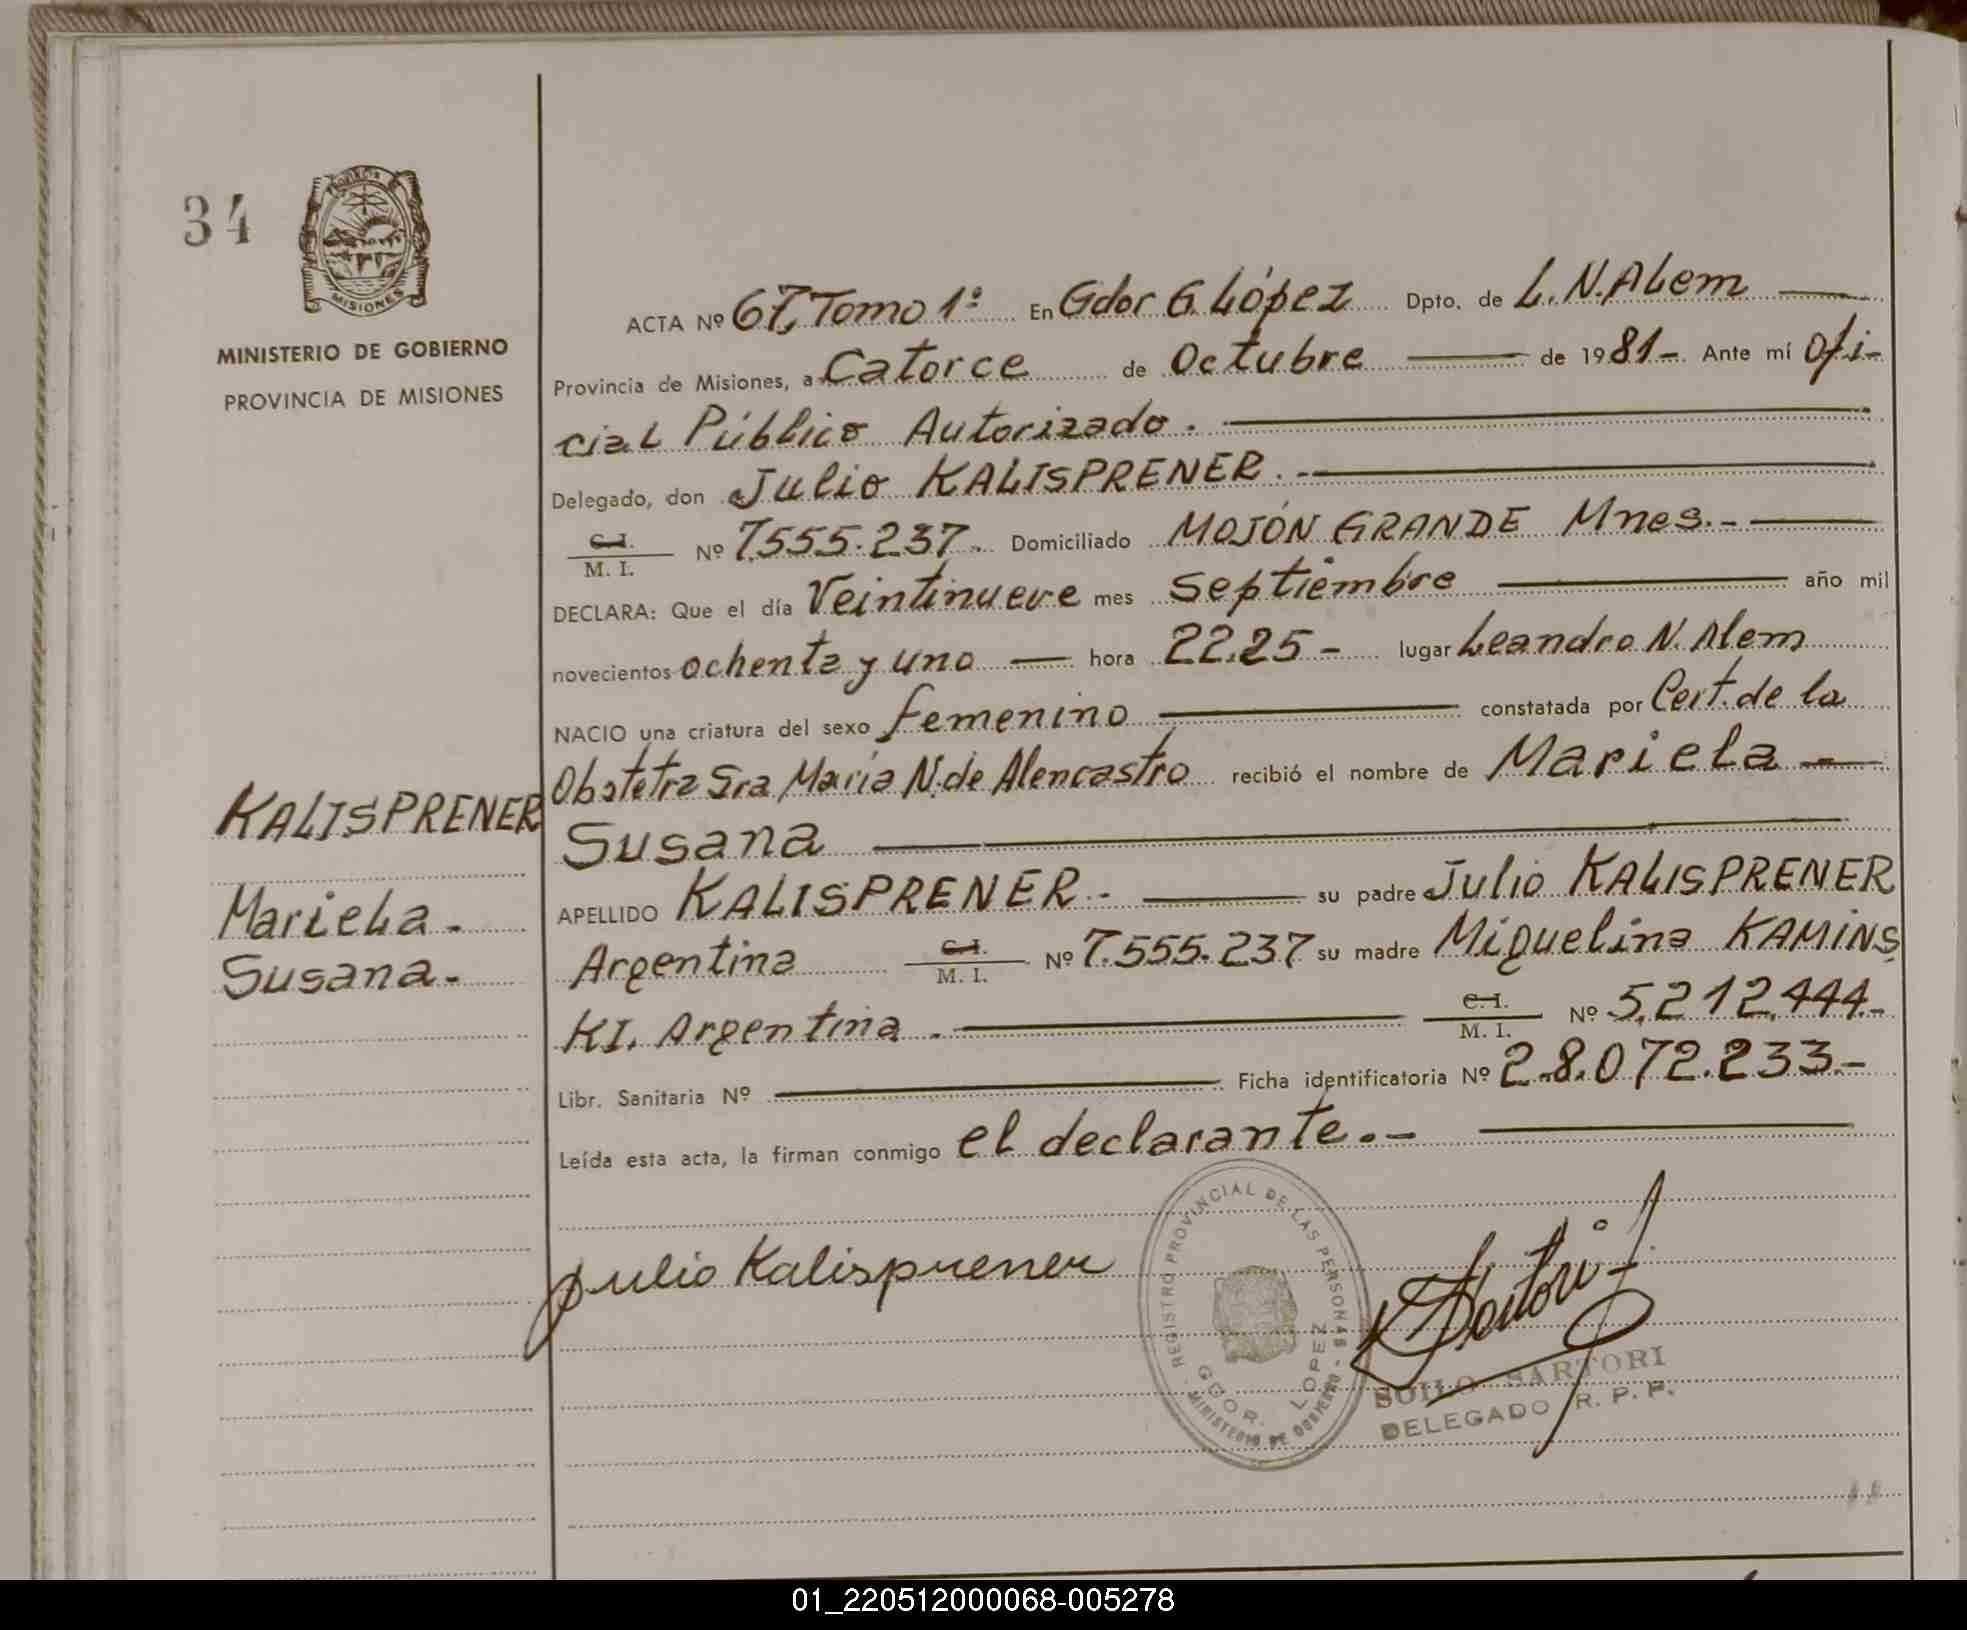 34
PROVINCIA DE
MISIONES
MINISTERIO DE GOBIERNO
PROVINCIA DE MISIONES
KALISPRENER
Mariela.
Susana.
ACTA Nº 67, Tomo 1º En Gdor G. López Dpto. de L. N. Alem
Provincia de Misiones, a Catorce de Octubre de 1981 - Ante mí Ofi-
cial Público Autorizado.
Delegado, don Julio KALISPRENER. -
C. I.
M. I. Nº 7.555.237 - Domiciliado MOJÓN GRANDE Mnes. -
DECLARA: Que el día Veintinueve mes Septiembre año mil
novecientos ochenta y uno hora 22.25 - lugar Leandro N. Alem
NACIO una criatura del sexo femenino constatada por Cert. de la
Obstetra Sra María N. de Alencastro recibió el nombre de Mariela -
Susana
APELLIDO KALISPRENER. - su padre Julio KALISPRENER
Argentina C. I. M. I. Nº 7.555.237 su madre Miguelina KAMINS
KI. Argentina. C. I. M. I. Nº 5.212.444.-
Libr. Sanitaria Nº Ficha identificatoria Nº 2.8.072.233.-
Leída esta acta, la firman conmigo el declarante. -
Julio Kalisprener
REGISTRO PROVINCIAL DE LAS PERSONAS
GDOR. LOPEZ
MINISTERIO DE GOBIERNO
Sartori
SARTORI
DELEGADO R. P. P.
01_220512000068-005278